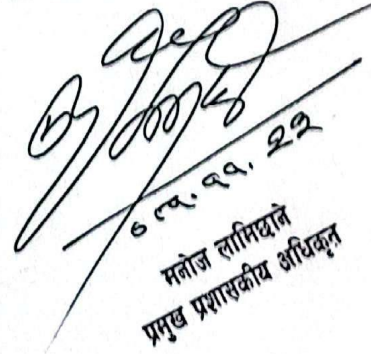 ०८१.११.२२
मनोज लामिछाने
प्रमुख प्रशासकीय अधिकृत